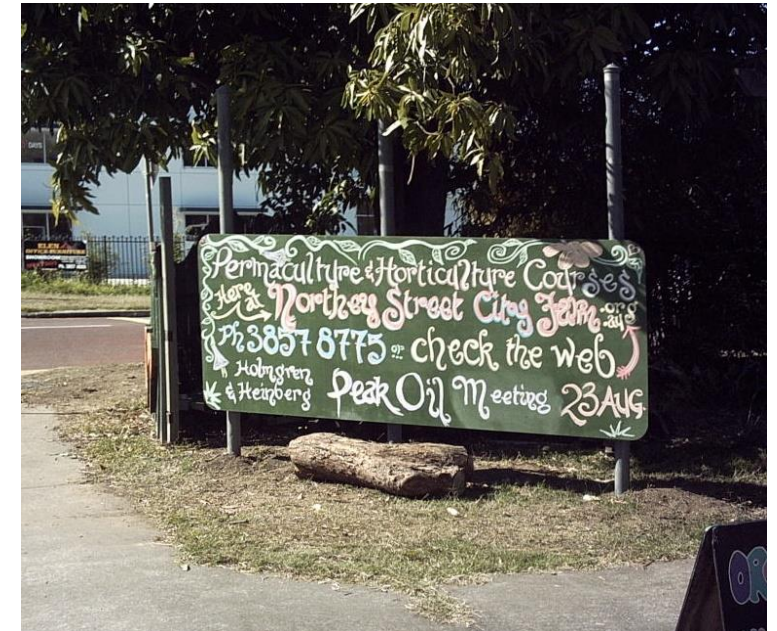 Permaculture & Horticulture Courses
Here at Northey Street City Farm .org .au
Ph 3857 8775 or check the web
Holmgren & Heinberg Peak Oil Meeting 23 AUG
ELEN
DAYS
OR